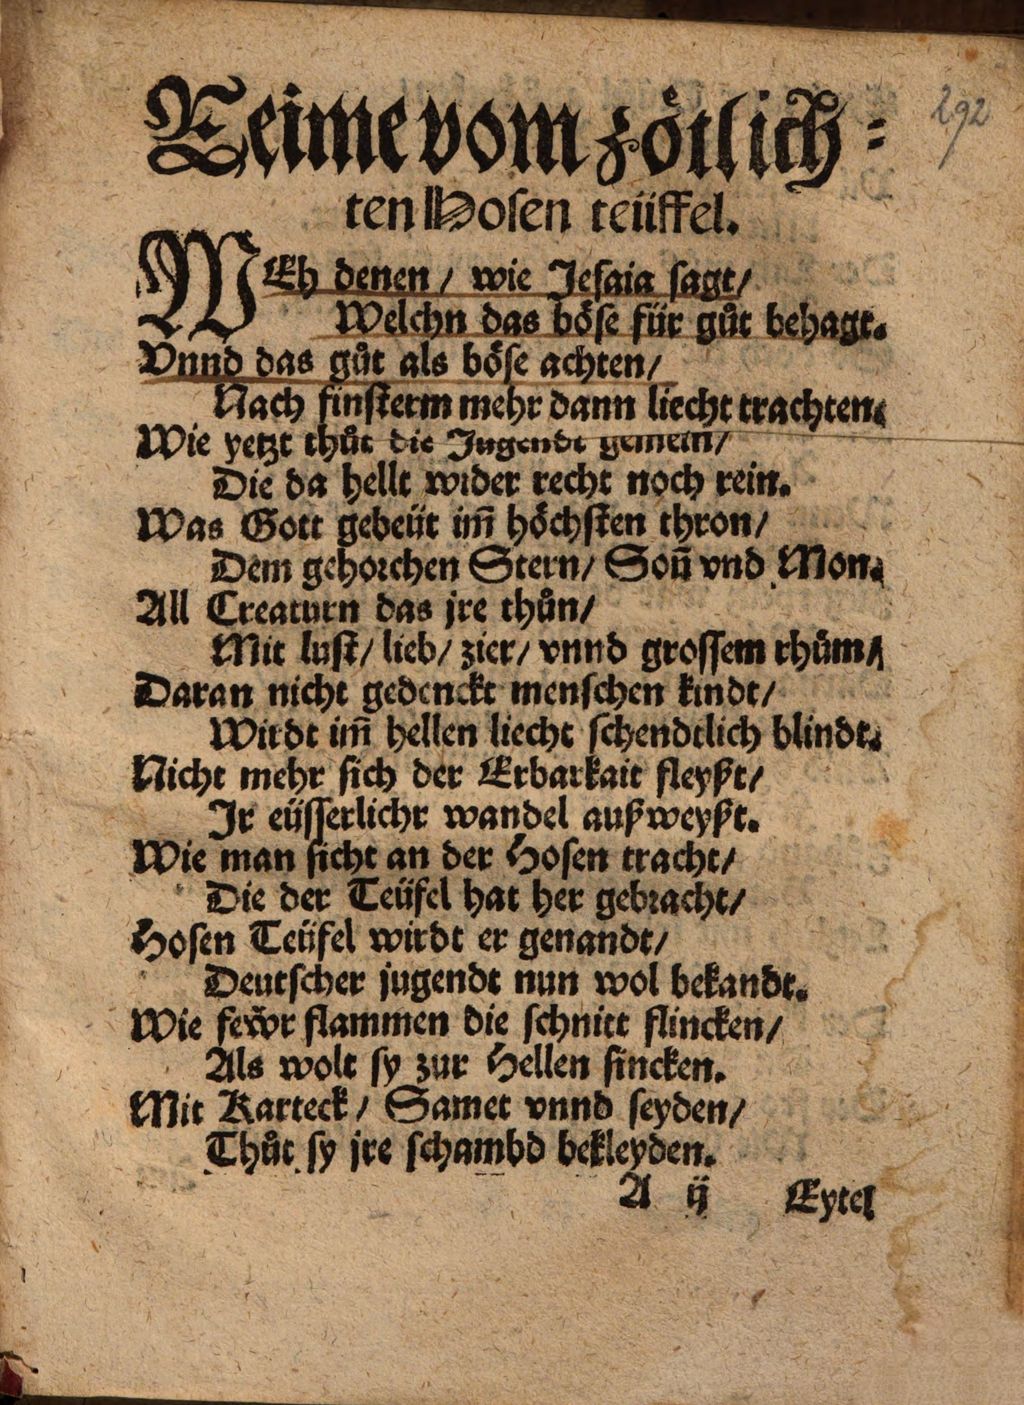 Reime vom zötlich⸗
ten Hosen teüffel.
292
WEh denen / wie Jesaia sagt /
Welchn das böse für gůt behagt.
Vnnd das gůt als böse achten /
Nach finsterm mehr dann liecht trachten.
Wie yetzt thůt die Jugendt gemein /
Die da hellt wider recht noch rein.
Was Gott gebeüt im̃ höchsten thron /
Dem gehorchen Stern / Soñ vnd Mon.
All Creaturn das jre thůn /
Mit lust / lieb / zier / vnnd grossem rhům /
Daran nicht gedenckt menschen kindt /
Wirdt im̃ hellen liecht schendtlich blindt.
Nicht mehr sich der Erbarkait fleyßt /
Ir eüsserlichr wandel außweyßt.
Wie man sicht an der Hosen tracht /
Die der Teüfel hat her gebracht /
Hosen Teüfel wirdt er genandt /
Deutscher jugendt nun wol bekandt.
Wie fewr flammen die schnitt flincken /
Als wolt sy zur Hellen sincken.
Mit Karteck / Samet vnnd seyden /
Thůt sy jre schambd bekleyden.
A ij Eytel